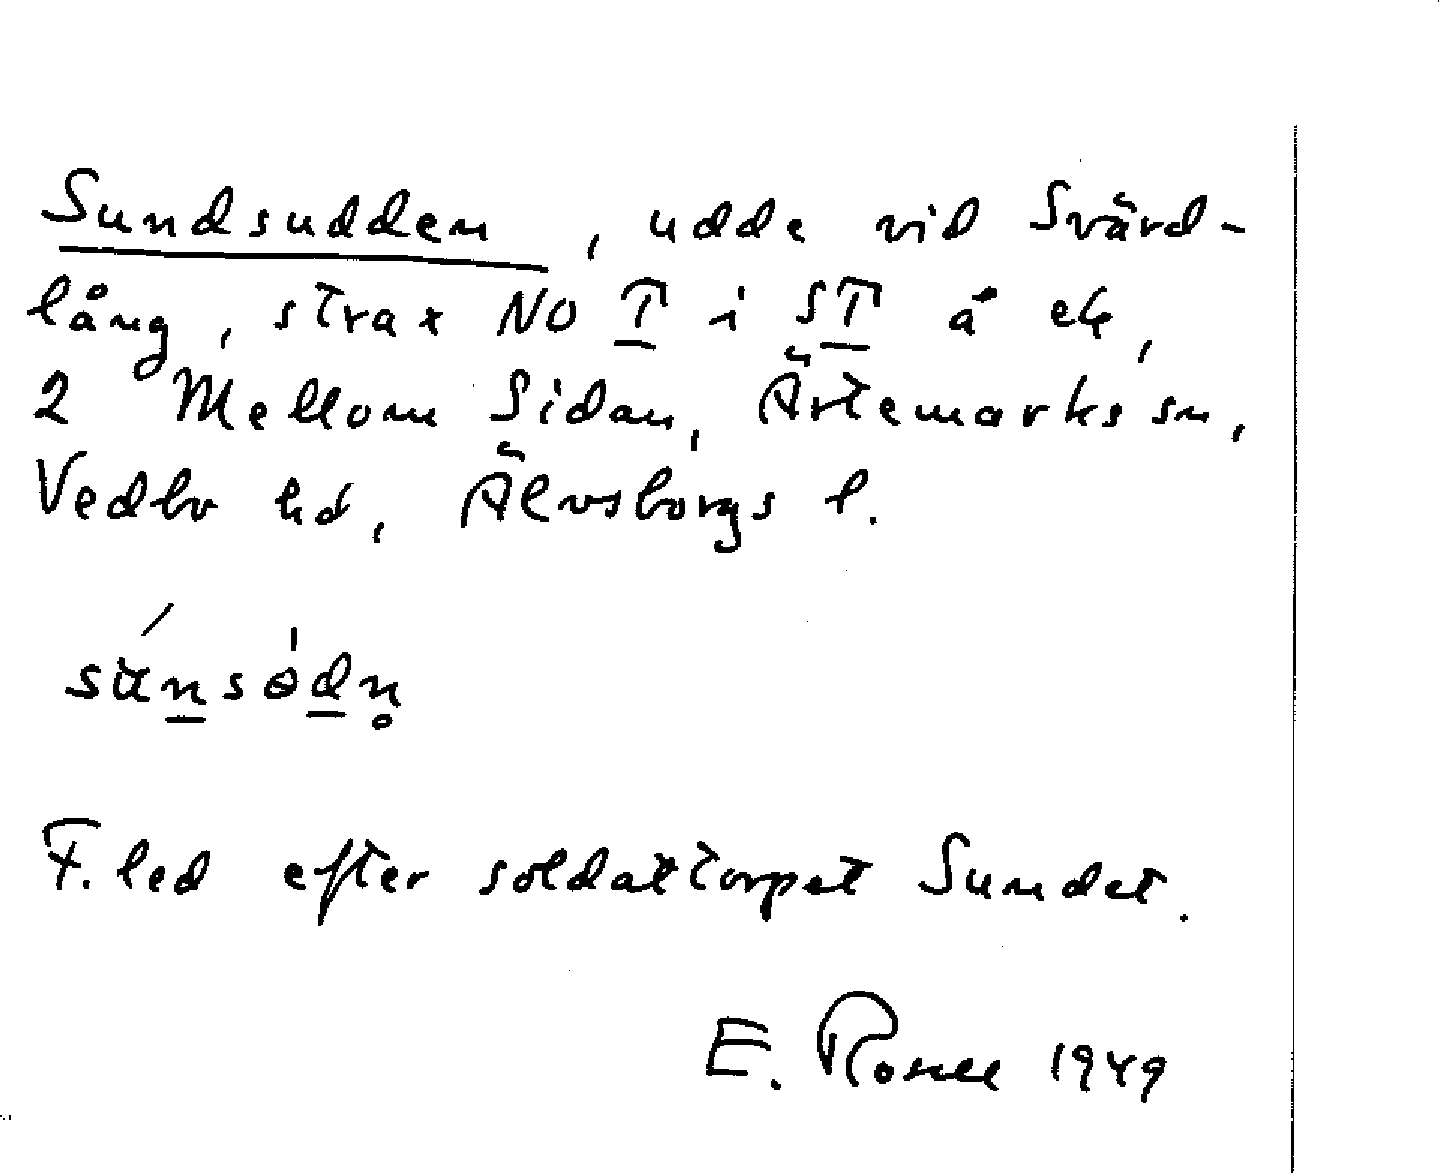 Sundsudden, udde vid Svärd-
lång, strax NO T i ST å ek,
2 Mellom Sidan, Ärtemarks sn,
Vedbo hd, Älvsborgs l.
F. led efter soldattorpet Sundet.
E. 1949